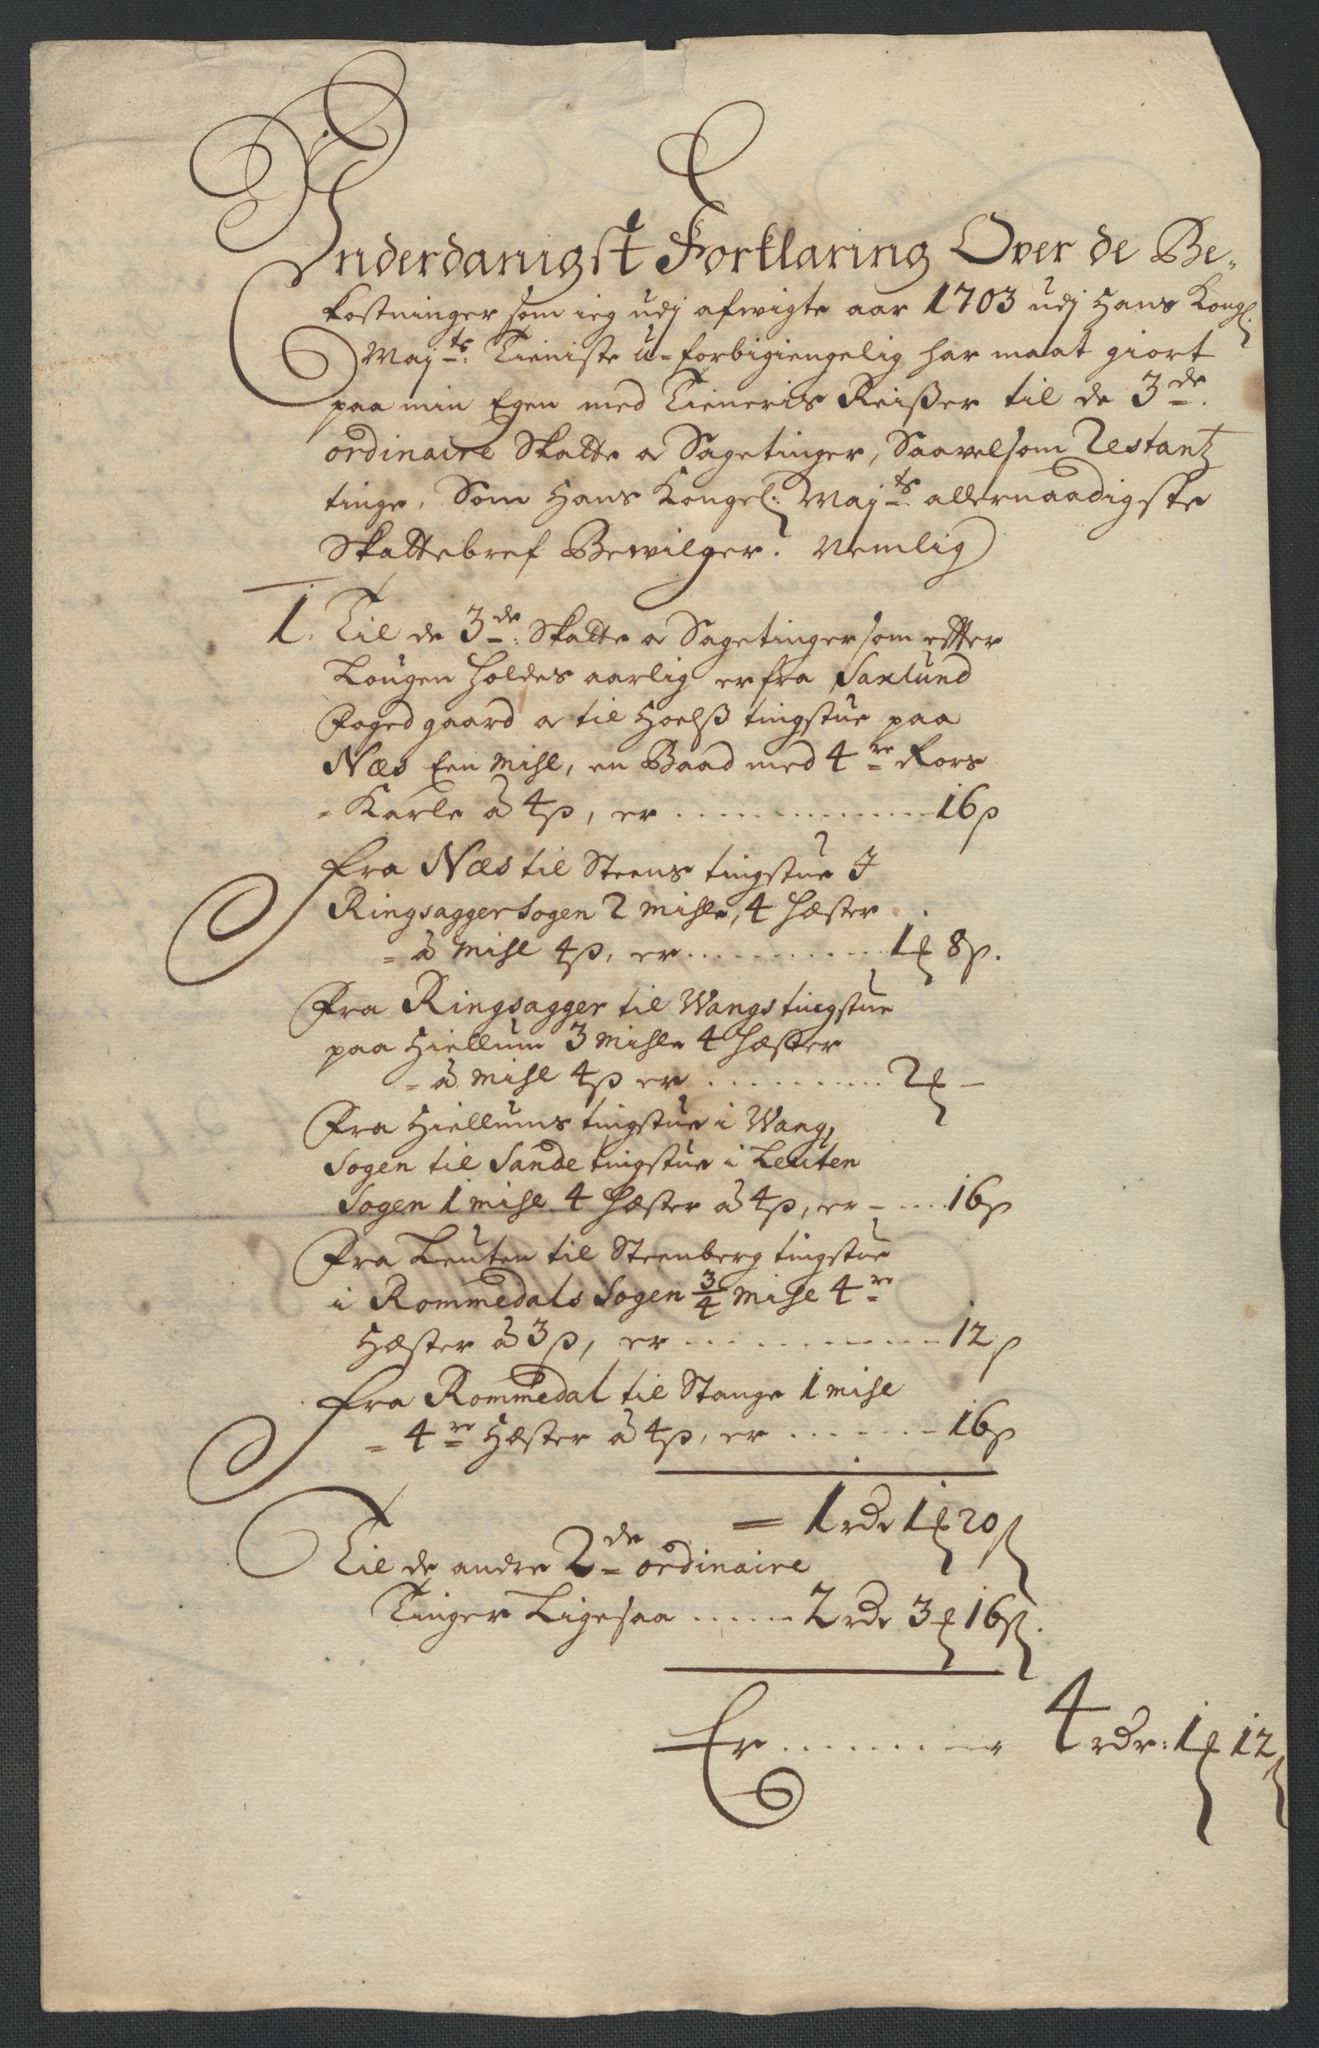 Underdanigst Forklaring Over de Be-
kostninger som ieg udj afwigte aar 1703 udj Hans Kongl:
Mayts: Tieniste u-forbigiengelig har maat giort
paa min Egen med Tieneris Reiser til de 3de
ordinaire Skatte o Sagetinger, Saavelsom Restantz
tinge, Som Hans Kongel: Mayts: allernaadigste
Skattebref Bewilger. Nemlig
1. Til de 3de: Skatte o Sagetinger som effter
Lougen holdes aarlig er fra Saxlund
Foged gaard o til Hoelß tingstue paa
Næs Een Mihl, en Baad med 4re Rors
Karle â 4s, er ............ 16s
Fra Næs til Steens tingstue J
Ringsagger Sogen 2 Mihle, 4 Hæster
â Mihl 4s, er .......... 1 8s.
Fra Ringsagger til Wangs tingstue
paa Hiellum 3 Mihle 4 hæster
â Mihl 4s er ........ 2 -
Fra Hiellums tingstue i Wang
Sogen til Sande tingstue i Leuten
Sogen 1 Mihl. 4 hæster â 4s, er - .... 16s
Fra Leuten til Steenberg tingstue
i Rommedals Sogen 3/4 Mihl 4re
Hæster â 3s, er .......... 12s
Fra Rommedal til Stange 1 Mihl
4re Hæster â 4s, er ....... 16s
= 1 rdr 1 20s
Til de andre 2de ordinaire
Tinger Ligesaa ..... 2 rdr 3 16s.
Er ........ 4 rdr: 1 12s